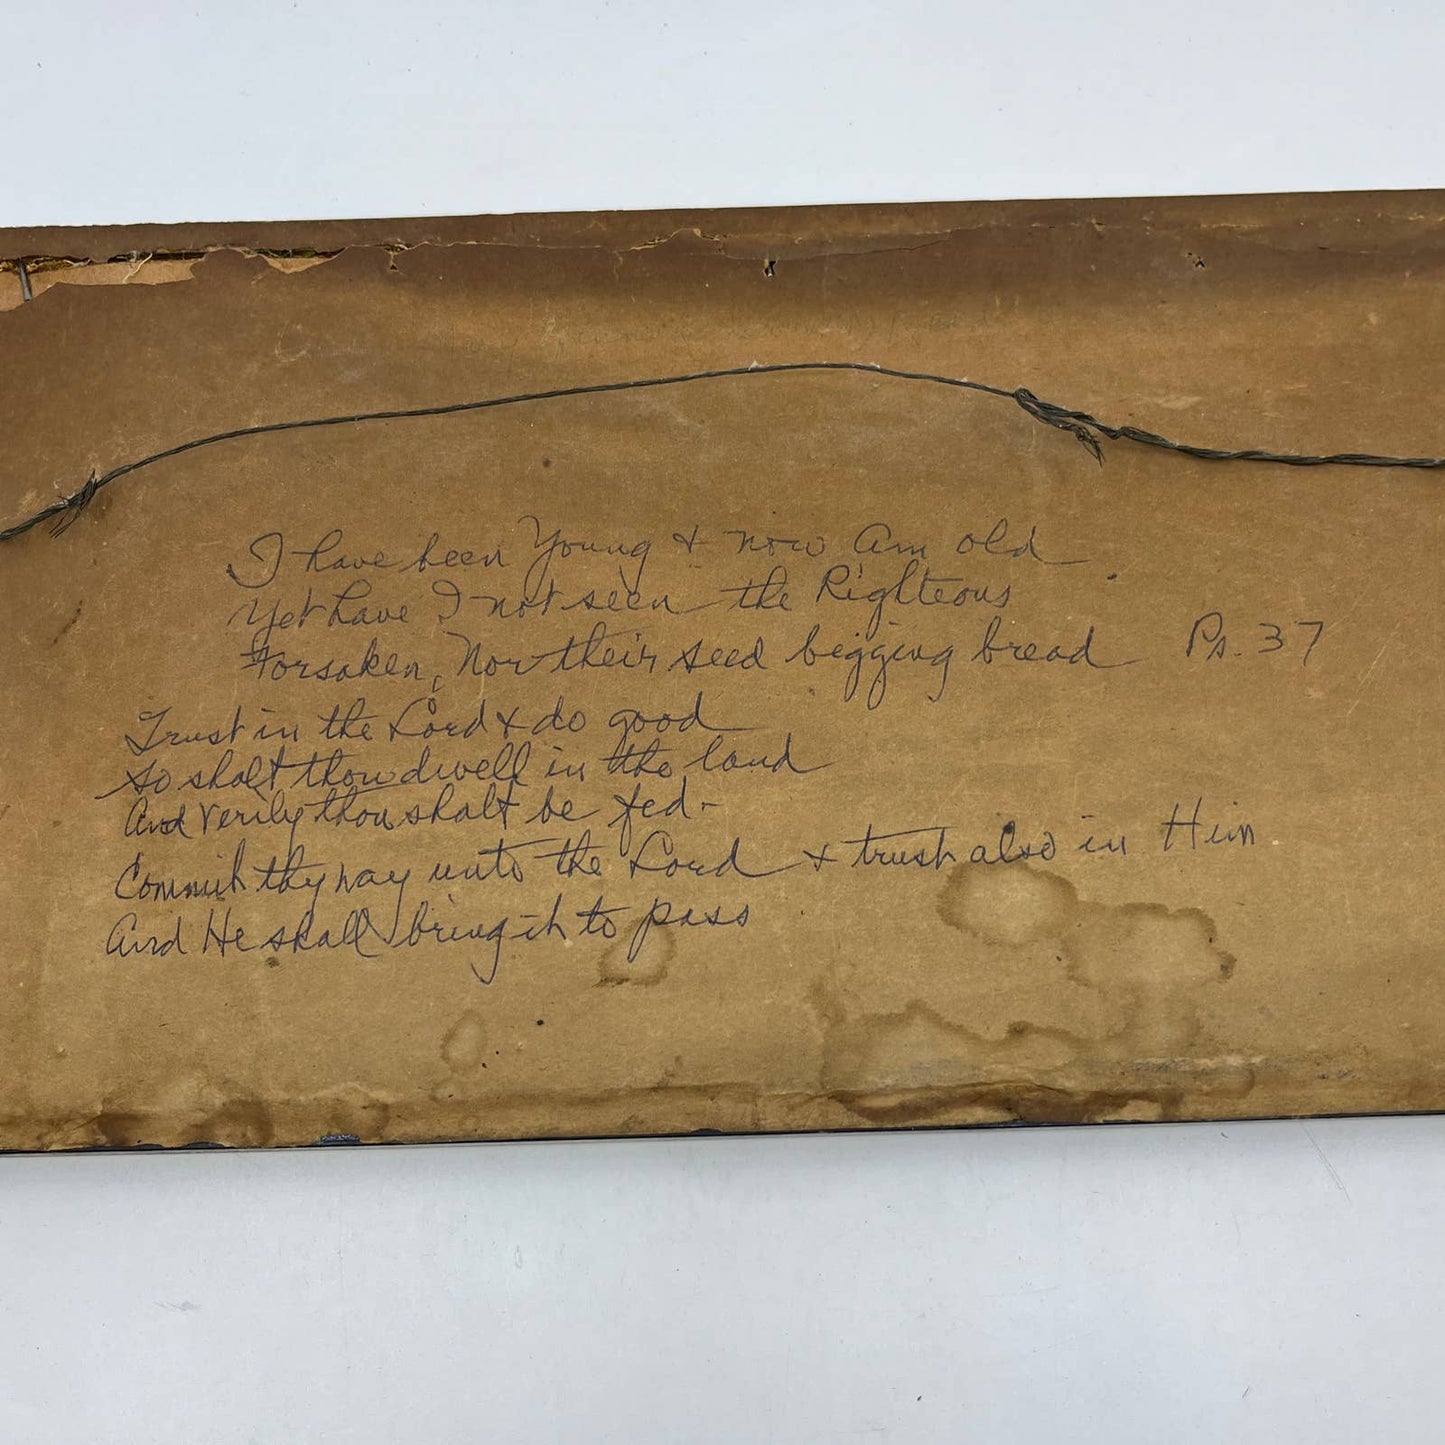 I have been Young & now am old
Yet have I not seen the Righteous
Forsaken, Nor their seed begging bread Ps. 37
Trust in the Lord & do good
So shalt thou dwell in the land
And verily thou shalt be fed -
Commit thy way unto the Lord & trust also in Him
And He shall bring it to pass